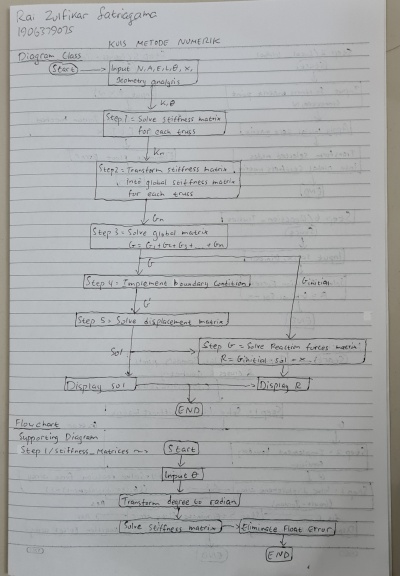 Rai Zulfikar Satriagama
1906379035
KUIS METODE NUMERIK
Diagram Class
Start
Input N, A, E, L, θ, x,
Geometry analysis
K, θ
Step 1 = Solve stiffness matrix
for each truss
Kn
Step 2 = Transform stiffness matrix
Into global stiffness matrix
for each truss
Gn
Step 3 = Solve global matrix
G = G1+G2+G3+ ... +Gn
G
Step 4 = Implement boundary Condition
G initial
G'
Step 5 = Solve displacement matrix
Sol
Step 6 = Solve Reaction forces matrix
R = Ginitial · Sol - x
Display sol
Display R
END
Flowchart
Supporting Diagram
Step 1/Stiffness_Matrices
Start
Input θ
Transform degree to radian
Solve Stiffness matrix
Eliminate Float Error
END